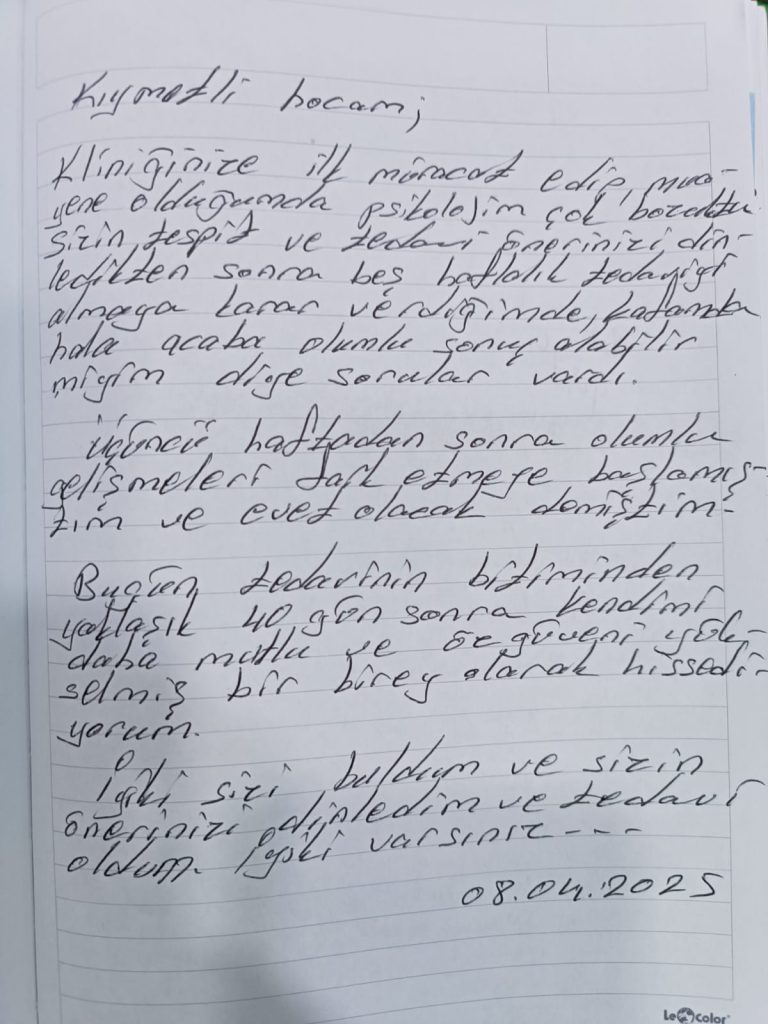 Kıymetli hocam;
Kliniğinize ilk müracat edip, mua-
yene olduğumda psikolojim çok bozuktu
sizin tespit ve tedavi önerinizi din-
ledikten sonra beş haftalık tedaviyi
almaya karar verdiğimde, kafamda
hala acaba olumlu sonuç alabilir
miyim diye sorular vardı.
Üçüncü haftadan sonra olumlu
gelişmeleri fark etmeye başlamış-
tım ve evet olacak demiştim-
Bugün tedavinin bitiminden
yaklaşık 40 gün sonra kendimi
daha mutlu ve özgüveni yük-
selmiş bir birey olarak hissedi-
yorum.
İyiki sizi buldum ve sizin
önerinizi dinledim ve tedavi
oldum. İyiki varsınız ---
08.04.2025
Le Color